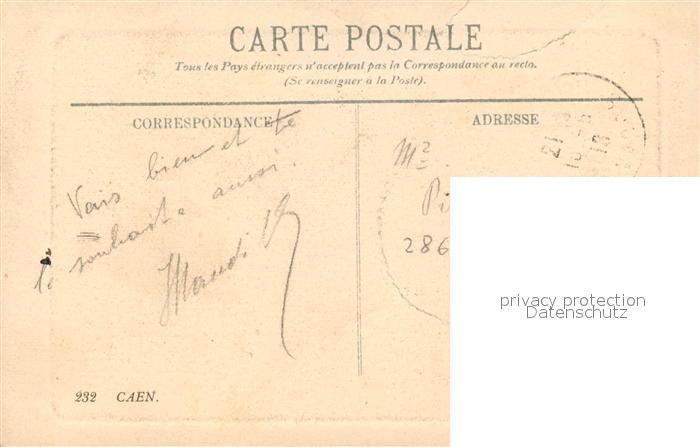 CARTE POSTALE
Tous les Pays étrangers n'acceptent pas la Correspondance au recto.
(Se renseigner à la Poste).
CORRESPONDANCE
ADRESSE
Vais bien et te
le souhaite aussi.
Mr
Pi
286
21
18
232 CAEN.
privacy protection
Datenschutz